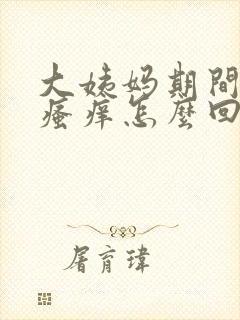 大姨妈期間
瘙痒怎麼回
屠育瑋